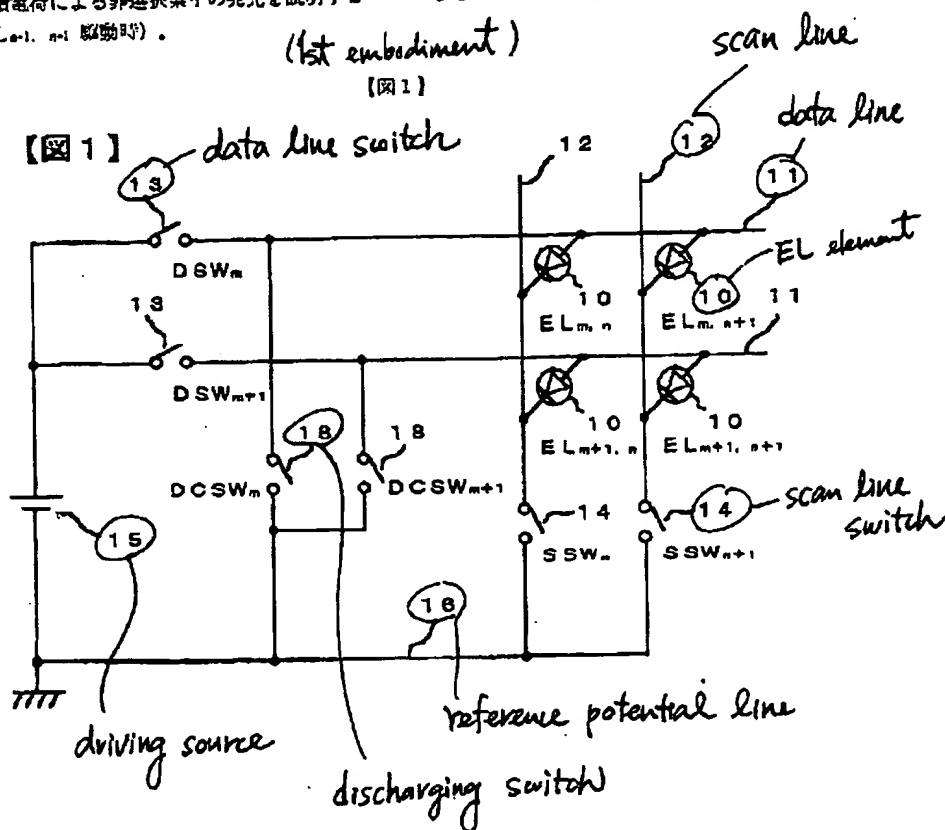 積電荷による非選択素子の発光を説明する
Ln-1, n-1 駆動時）.
(1st embodiment)
【図1】
scan line
【図1】
data line switch
data line
13
12
12
11
DSWm
EL element
10
10
11
ELm, n
ELm, n+1
13
DSWm+1
10
10
ELm+1, n
ELm+1, n+1
18
18
DCSWm
DCSWm+1
14
14
scan line
switch
SSWn
SSWn+1
15
16
reference potential line
driving source
discharging switch